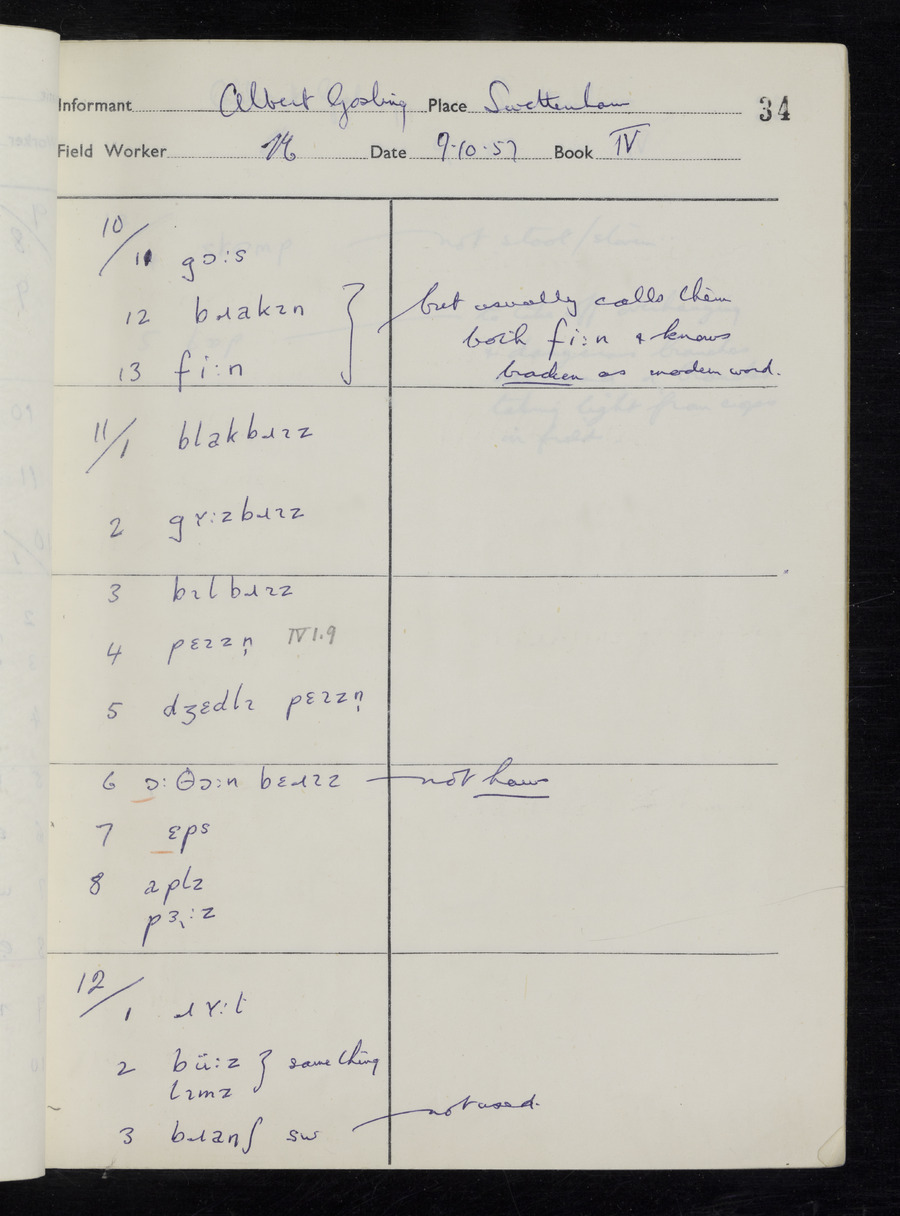 Informant Albert Gosling Place Swettenham 34
Field Worker Date 9-10-57 Book IV
10/
11 gɔːs
12 bɹakən } but usually calls them
both fiːn & knows
13 fiːn bracken as modern word.
11/1 blakbɹɪz
2 gʏːzbɹɪz
3 bɪlbɹɪz
4 pɛɪzn̩ IV 1.9
5 dʒɛdlɪ pɛɪzn̩
6 ɔːθɔːn bɛɹɪz — not haws
7 ɛps
8 aplz
pɜːz
12/1 ɹʏːt
2 büːz } same thing
lɪmz
3 bɹanʃ sw — not used.